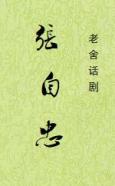 老舍话剧
張自忠